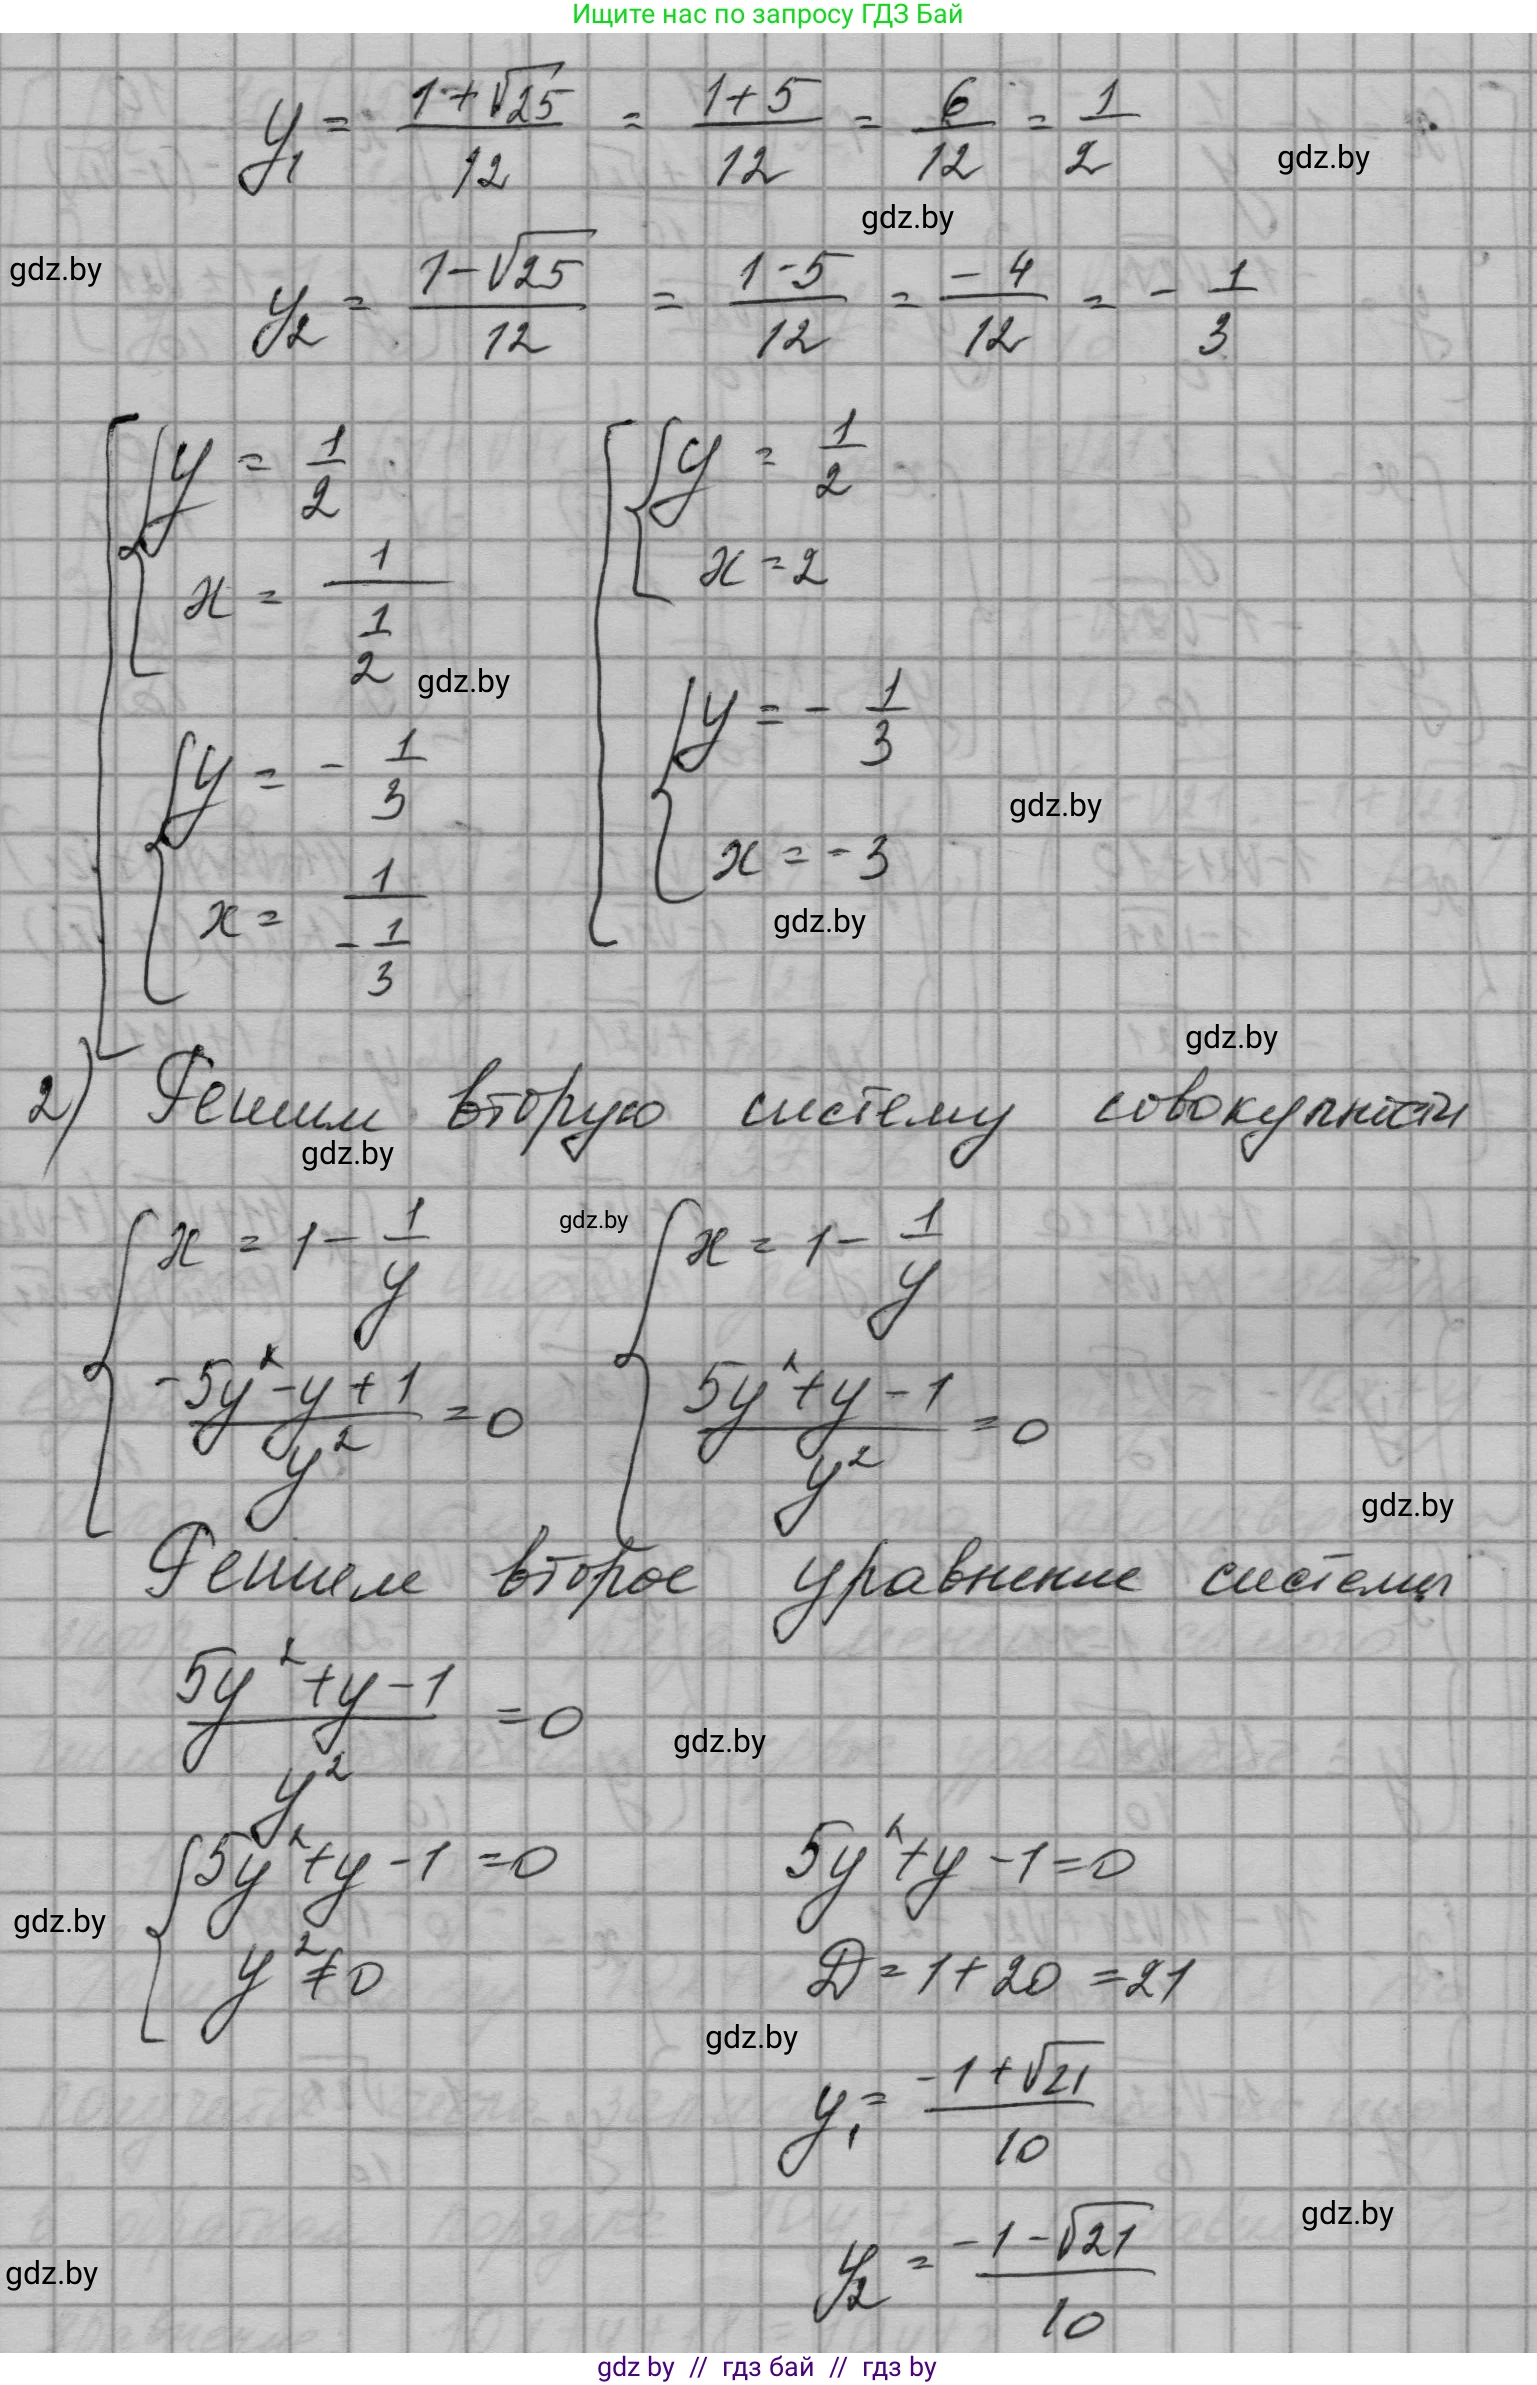 Ищите нас по запросу ГДЗ Бай
y₁ = (1+√25)/12 = (1+5)/12 = 6/12 = 1/2
gdz.by
gdz.by
gdz.by
y₂ = (1-√25)/12 = (1-5)/12 = -4/12 = -1/3
[ { y = 1/2 [ { y = 1/2
x = 1/(1/2) x = 2
gdz.by
{ y = -1/3 { y = -1/3
gdz.by
x = 1/(-1/3) x = -3
gdz.by
gdz.by
2) Решим вторую систему совокупности
gdz.by
{ x = 1 - 1/y gdz.by { x = 1 - 1/y
(-5y²-y+1)/y² = 0 (5y²+y-1)/y² = 0
gdz.by
Решим второе уравнение системы
(5y²+y-1)/y² = 0
gdz.by
{ 5y²+y-1=0 5y²+y-1=0
gdz.by
y²≠0 D=1+20=21
gdz.by
y₁ = (-1+√21)/10
gdz.by
y₂ = (-1-√21)/10
gdz.by
gdz by // гдз бай // гдз by